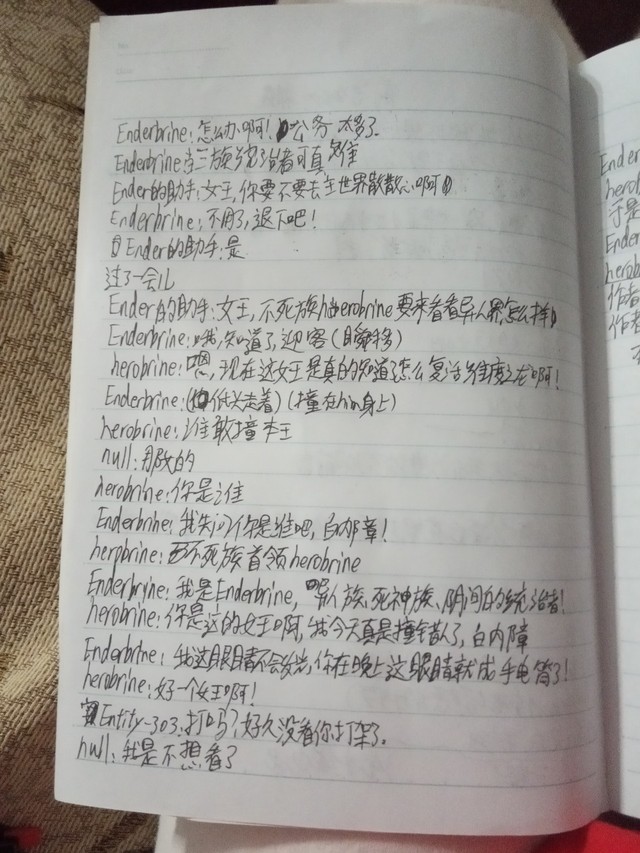 Enderbrine:怎么办啊!公务太多了。
Enderbrine:当三族统治者可真难
Ender的助手:女王,你要不要去主世界散散心啊
Enderbrine:不用了,退下吧!
Ender的助手:是
过了一会儿
Ender的助手:女王,不死族herobrine要来看看异人界怎么样
Enderbrine:哦,知道了,迎客(瞬移)
herobrine:嗯,现在这女王是真的知道了怎么复活维度之龙啊!
Enderbrine:(低头走着)(撞在him身上)
herobrine:谁敢撞本王
null:那女的
herobrine:你是谁
Enderbrine:我先问你是谁吧,白内章!
herpbrine:不死族首领herobrine
Enderbryne:我是Enderbrine,异人族、死神族、阴间的统治者!
herobrine:你是这的女王啊,我今天真是撞错人了,白内障
Enderbrine:我这眼睛不会发光,你在晚上这眼睛就成手电筒了!
herobrine:好一个女王啊!
Entity-303:打吗?好久没看你打架了。
null:我是不想看了
Ender
herob
于是
Ender
herob
作者